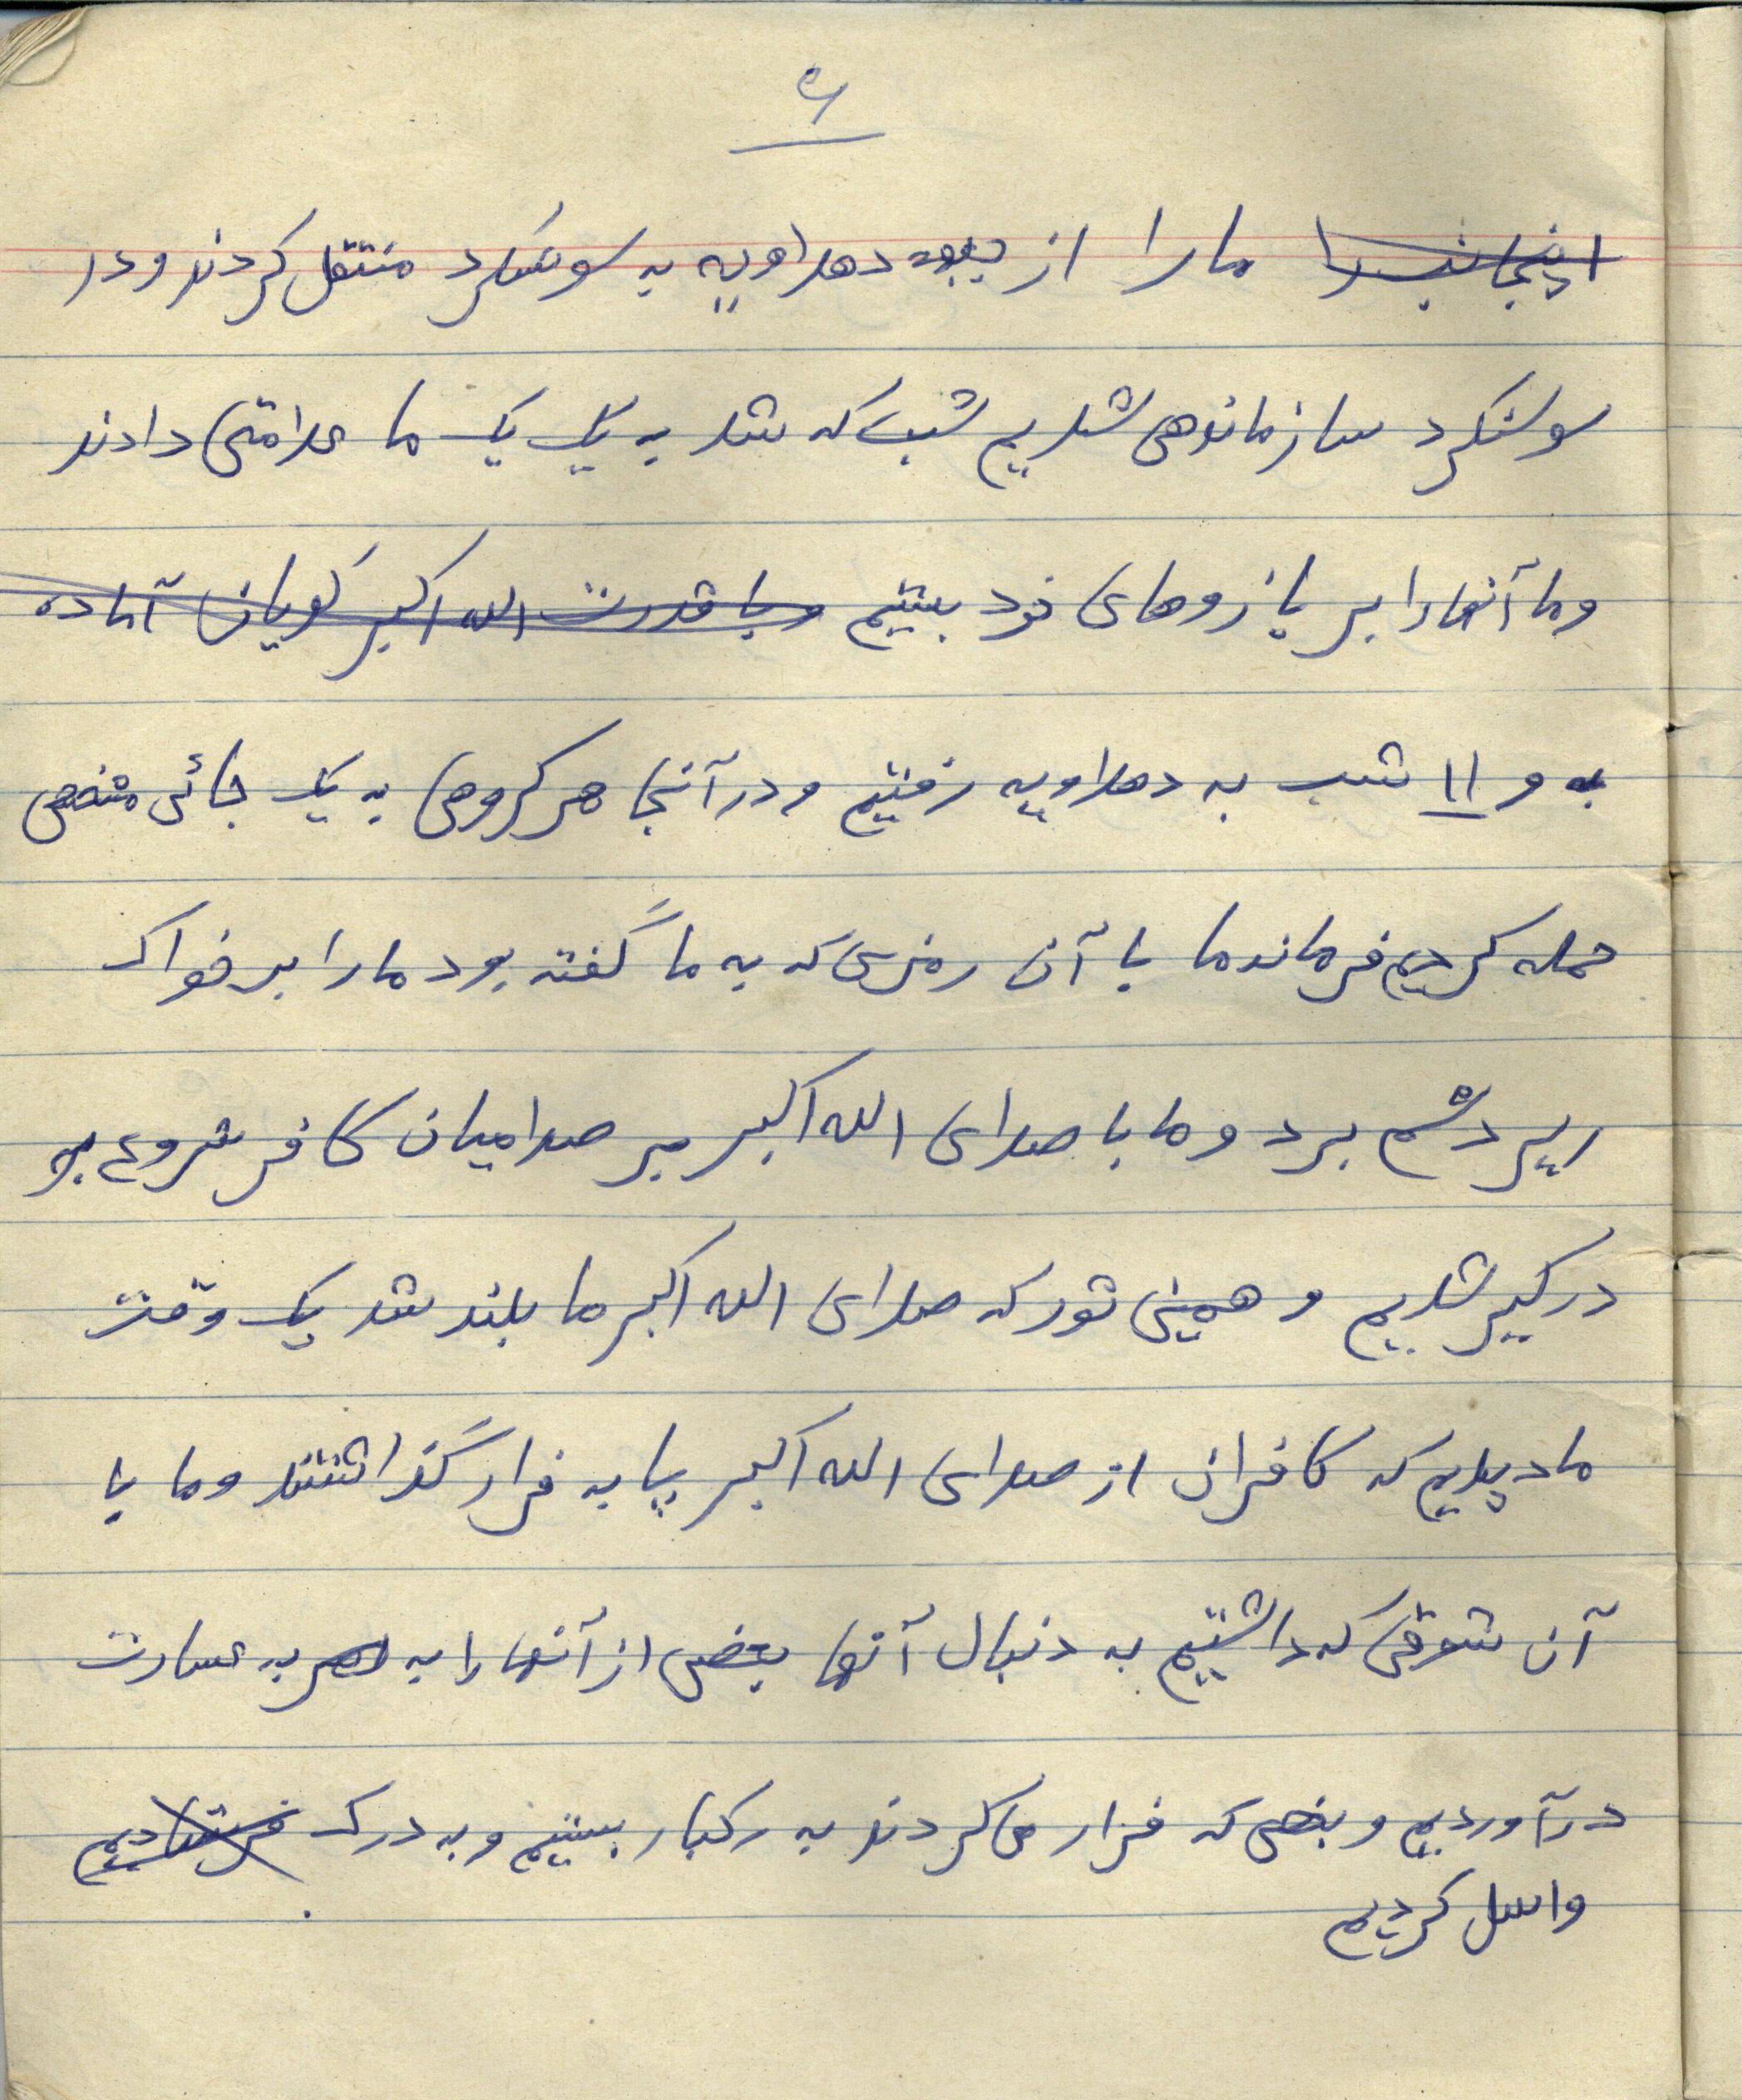 ۶
اینجانبرا ما را از دهلاویه به سوسنگرد منتقل کردند و در
سوسنگرد سازماندهی شدیم شب که شد به یک یک ما علامتی دادند
و ما آنها را بر بازوهای خود بستیم و با قدرت الله اکبر گویان آماده
به و ۱۱ شب به دهلاویه رفتیم و در آنجا هر گروهی به یک جائی مشخصی
حمله کردیم فرمانده ما با آن رمزی که به ما گفته بود ما را بر خواک
ریز دشم برد و ما با صدای الله اکبر بر صدامیان کافر شروع بر
درگیر شدیم و همینی تور که صدای الله اکبر ما بلند شد یک وقت
ما دیدیم که کافران از صدای الله اکبر پا به فرار گذاشتند و ما با
آن شوقی که داشتیم به دنبال آنها بعضی از آنها را به به عسارت
درآوردیم و بعضی که فرار می کردند به رگبار بستیم و به درک فرستادیم
واسل کردیم